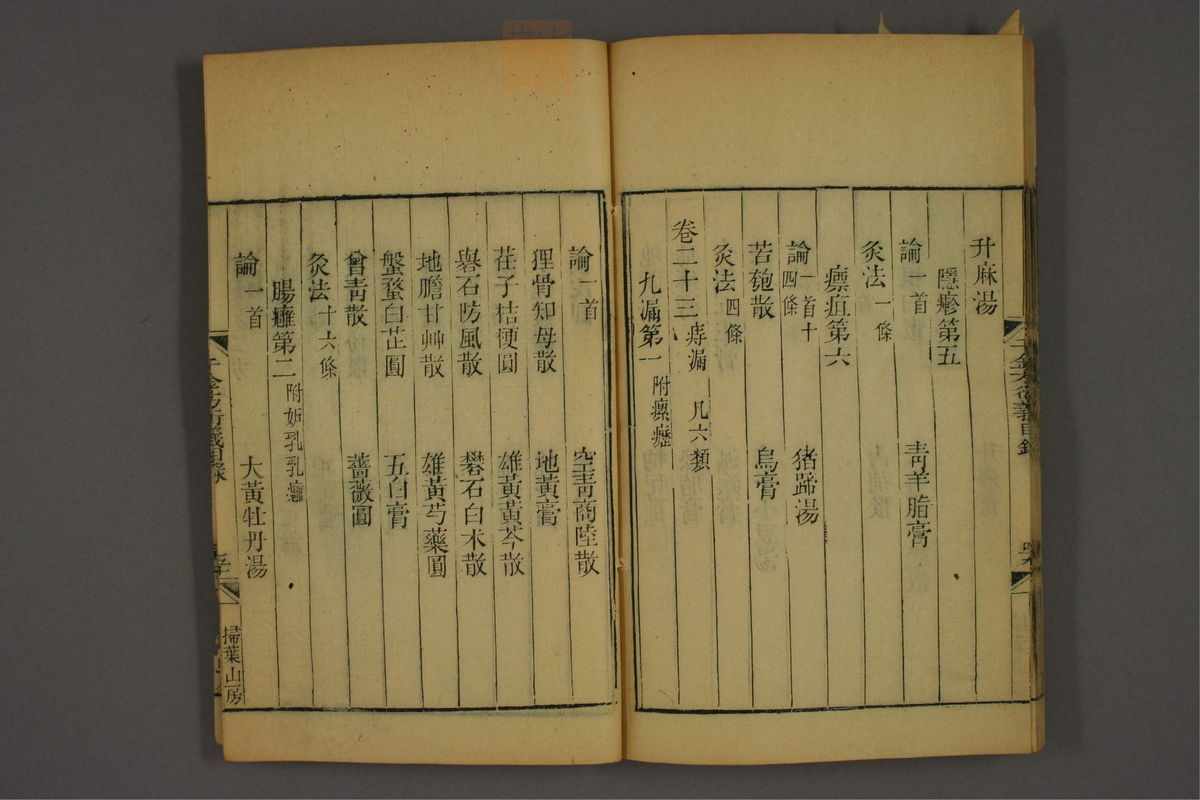 升麻湯
隱疹第五
論一首　青羊脂膏
灸法一條
瘭疽第六
論一首十四條　猪蹄湯
苦瓠散　烏膏
灸法四條
卷二十三　痔漏　凡六類
九漏第一　附瘰癧
論一首　空靑商陸散
狸骨知母散　地黃膏
荏子桔梗圓　雄黃黃芩散
礜石防風散　礬石白朮散
地膽甘艸散　雄黃芍藥圓
盤蝥白芷圓　五白膏
曾靑散　薔薇圓
灸法十六條
腸癰第二　附妬乳乳癰
論一首　大黃牡丹湯
掃葉山房